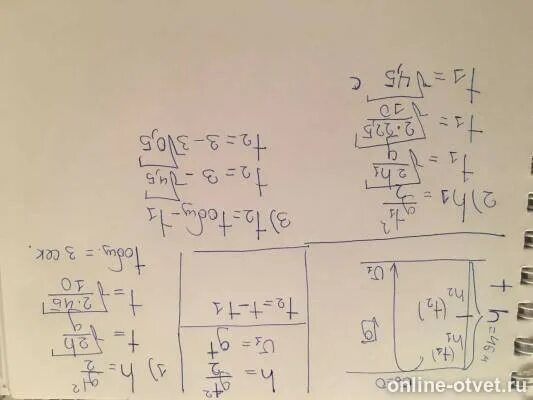 t h=45м
υ₀=0
(t₁)
h₁
(t₂)
h₂
g
υ₁
h = gt²/2
υ₁ = gt
t₂ = t - t₁
1) h = gt²/2
t = √(2h/g)
t = √(2·45/10)
tобщ. = 3 сек.
2) h₁ = gt₁²/2
t₁ = √(2h₁/g)
t₁ = √(2·22,5/10)
t₁ = √4,5 с
3) t₂ = tобщ - t₁
t₂ = 3 - √4,5
t₂ = 3 - 3√0,5
online-otvet.ru